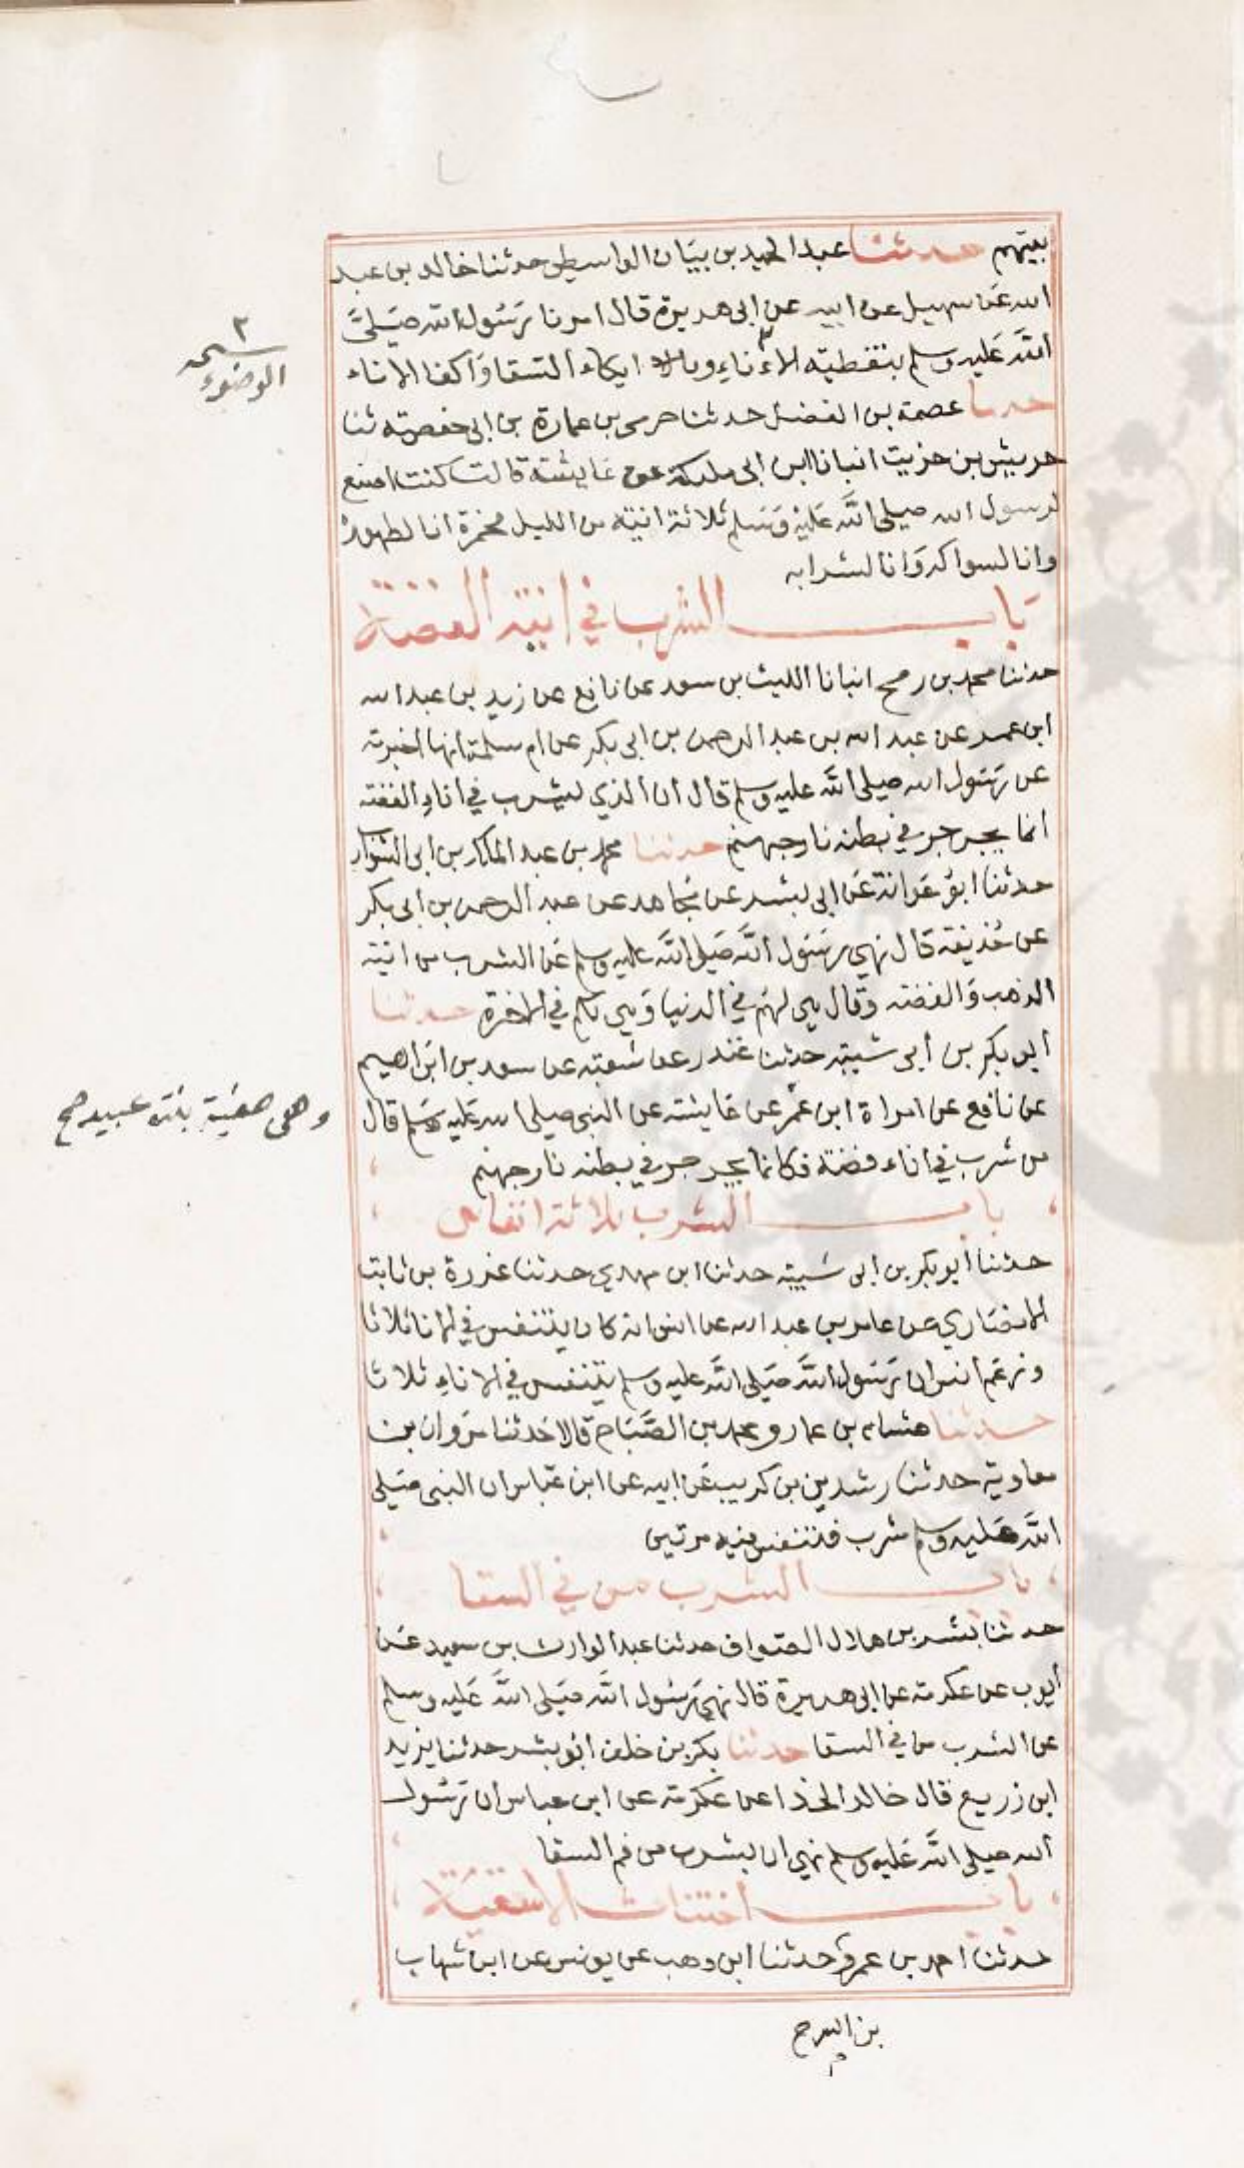 بيتهم حدثنا عبد الحميد بن بيان الواسطي حدثنا خالد بن عبد
الله عن سهيل عن ابيه عن ابي هريرة قال امرنا رسول الله صلى
الله عليه وسلم بتغطية الاناء وبالا ايكاء السقا واكفا الاناء
٢
نسخه
الوضوء
حدثنا عصمة بن الفضل حدثنا حرمى بن عمارة بن ابي حفصة ثنا
حريش بن خريت انبانا ابن ابي مليكة عن عايشة قالت كنت اصنع
لرسول الله صلى الله عليه وسلم ثلاثة انية من الليل مخمرة انا لطهوره
وانا لسواكه وانا لشرابه
باب الشرب في انية الفضة
حدثنا محمد بن رمح انبانا الليث بن سعد عن نافع عن زيد بن عبد الله
ابن عمر عن عبد الله بن عبد الرحمن بن ابي بكر عن ام سلمة انها اخبرته
عن رسول الله صلى الله عليه وسلم قال ان الذي ليشرب في اناء الفضة
انما يجرجر في بطنه نار جهنم حدثنا محمد بن عبد الملك بن ابي الشوارب
حدثنا ابو عوانة عن ابي بشر عن مجاهد عن عبد الرحمن بن ابي بكر
عن حذيفة قال نهى رسول الله صلى الله عليه وسلم عن الشرب من انية
الذهب والفضة وقال هي لهم في الدنيا وهي لكم في الاخرة حدثنا
ابو بكر بن أبي شيبة حدثنا غندر عن شعبة عن سعد بن ابراهيم
عن نافع عن امراة ابن عمر عن عايشة عن النبي صلى الله عليه وسلم قال
وهي صفية بنت عبيد صح
من شرب في اناء فضة فكانما يجرجر في بطنه نار جهنم
باب الشرب بثلاثة انفاس
حدثنا أبو بكر بن أبي شيبة حدثنا ابن مهدي حدثنا عزرة بن ثابت
الانصاري عن عامر بن عبد الله عن انس انه كان يتنفس في الانا ثلاثا
وزعم انس ان رسول الله صلى الله عليه وسلم يتنفس في الاناء ثلاثا
حدثنا هشام بن عمار ومحمد بن الصباح قالا حدثنا مروان بن
معاوية حدثنا رشدين بن كريب عن ابيه عن ابن عباس ان النبي صلى
الله عليه وسلم شرب فتنفس فيه مرتين
باب الشرب من في السقا
حدثنا بشر بن هلال الصواف حدثنا عبد الوارث بن سعيد عن
أيوب عن عكرمة عن ابي هريرة قال نهى رسول الله صلى الله عليه وسلم
عن الشرب من في السقا حدثنا بكر بن خلف ابو بشر حدثنا يزيد
ابن زريع قال خالد الحذا عن عكرمة عن ابن عباس ان رسول
الله صلى الله عليه وسلم نهى ان يشرب من فم السقا
باب اختناث الاسقية
حدثنا احمد بن عمرو حدثنا ابن وهب عن يونس عن ابن شهاب
بن السرح